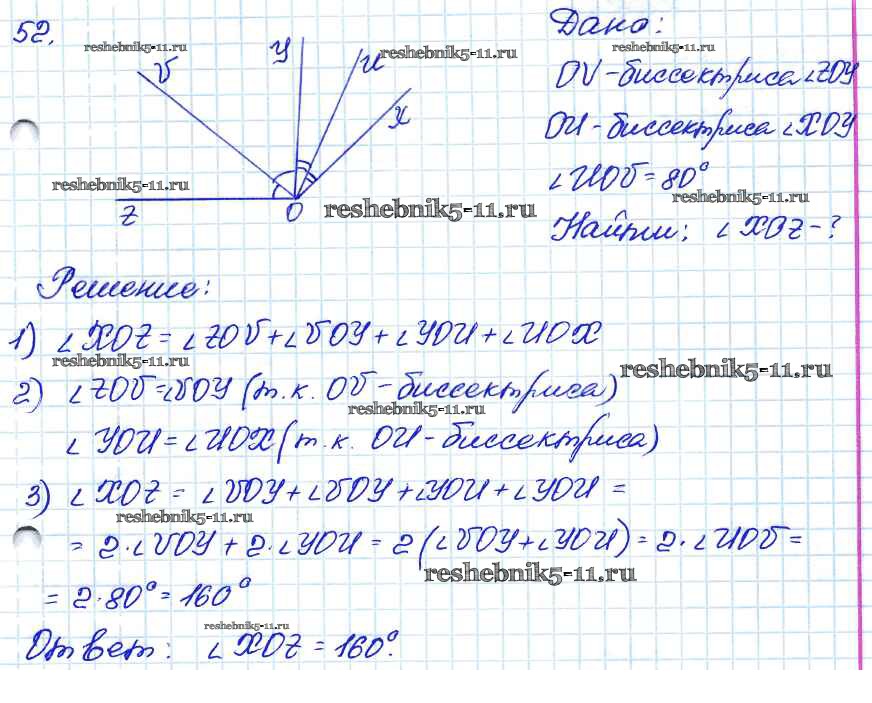 52.
reshebnik5-11.ru
V
У
U
reshebnik5-11.ru
X
reshebnik5-11.ru
Z
O
reshebnik5-11.ru
Дано:
reshebnik5-11.ru
OV - биссектриса ∠ZOY
OU - биссектриса ∠XOY
∠UOV = 80°
reshebnik5-11.ru
Найти: ∠XOZ - ?
Решение:
1) ∠XOZ = ∠ZOV + ∠VOY + ∠YOU + ∠UOX
reshebnik5-11.ru
reshebnik5-11.ru
2) ∠ZOV = ∠VOY (т.к. OV - биссектриса)
reshebnik5-11.ru
∠YOU = ∠UOX (т.к. OU - биссектриса)
3) ∠XOZ = ∠VOY + ∠VOY + ∠YOU + ∠YOU =
reshebnik5-11.ru
= 2·∠VOY + 2·∠YOU = 2(∠VOY + ∠YOU) = 2·∠UOV =
reshebnik5-11.ru
= 2·80° = 160°
reshebnik5-11.ru
Ответ: ∠XOZ = 160°.